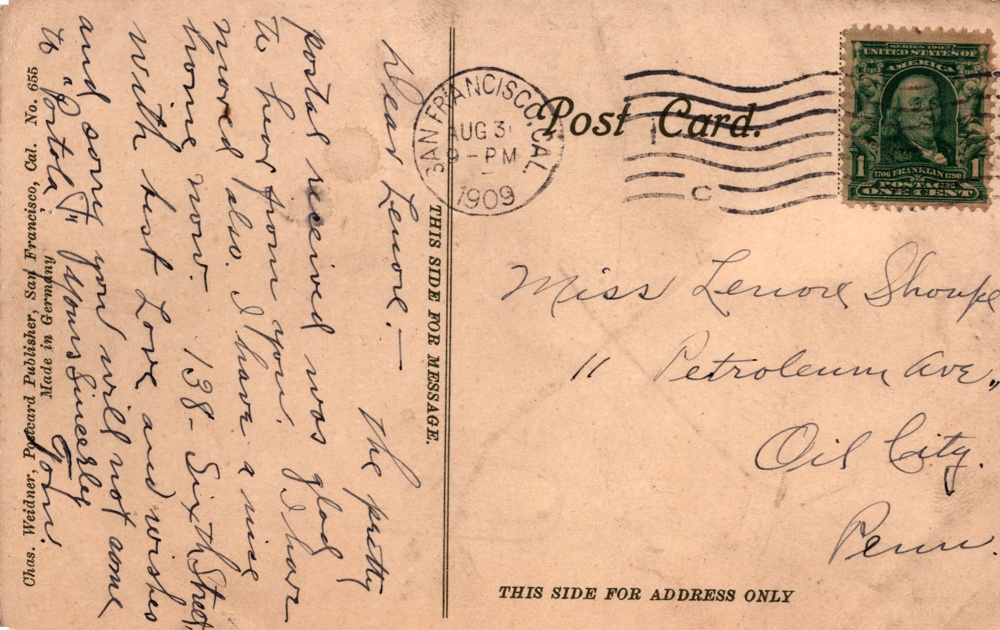 Dear Lenore:— The pretty
postal received was glad
to hear from you. I have
moved also. I have a nice
home now. 138- Sixth Street
With best Love and wishes
and sorry you will not come
to "Portola" Yours Sincerely
THIS SIDE FOR MESSAGE.
Chas. Weidner, Postcard Publisher, San Francisco, Cal. No. 655
Made in Germany
Post Card.
SAN FRANCISCO, CAL.
AUG 31
9-PM
1909
C
SERIES 1902
UNITED STATES OF
AMERICA
1 1706 FRANKLIN 1790 1
POSTAGE
ONE CENT
Miss Lenore Shoupe
11 Petroleum Ave.,
Oil City.
Penn.
THIS SIDE FOR ADDRESS ONLY